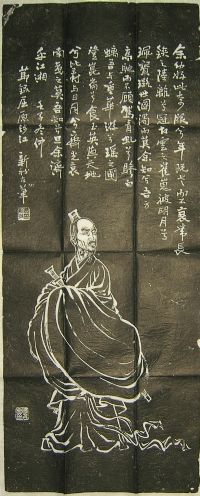 余幼好此奇服兮年既老而不衰帶長
鋏之陸離兮冠切雲之崔嵬被明月兮
珮寶璐世溷濁而莫余知兮吾方
高馳而不顧駕青虬兮驂白
螭吾與重華游兮瑤之圃
登崑崙兮食玉英與天地
兮比壽與日月兮齊光哀
南夷之莫吾知兮旦余濟
乎江湘
屈原涉江